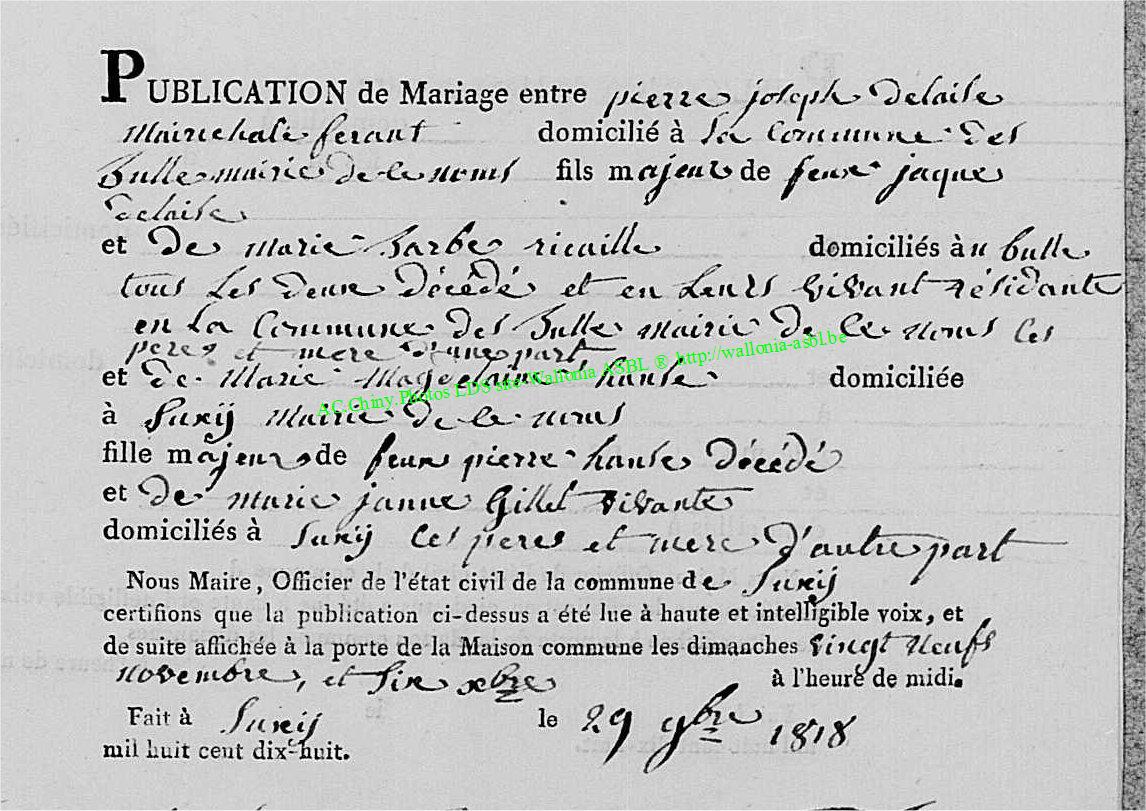 PUBLICATION de Mariage entre pierre joseph Delaise
Mairichale ferant domicilié à La Commune Des
Bulle mairie De le noms fils majeur de feux jaque
delaise
et De Marie barbe ricaille domiciliés à u bulle
tous Les Deux Décédé et en Leurs vivant résidante
en La Commune Des Bulle mairie De le noms Ces
peres et mere d'une part
et De Marie Magdelaine hanse domiciliée
AC.Chiny.Photos LDS site-Wallonia ASBL ® http://wallonia-asbl.be
à Suxij Mairie De le noms
fille majeur de feux pierre hanse Décédé
et De marie janne Gillet vivante
domiciliés à Suxij Ces peres et mere D'autre part
Nous Maire, Officier de l'état civil de la commune de Suxij
certifions que la publication ci-dessus a été lue à haute et intelligible voix, et
de suite affichée à la porte de la Maison commune les dimanches vingt neufs
novembre, et Six xbre à l'heure de midi.
Fait à Suxij le 29 9bre 1818
mil huit cent dix-huit.